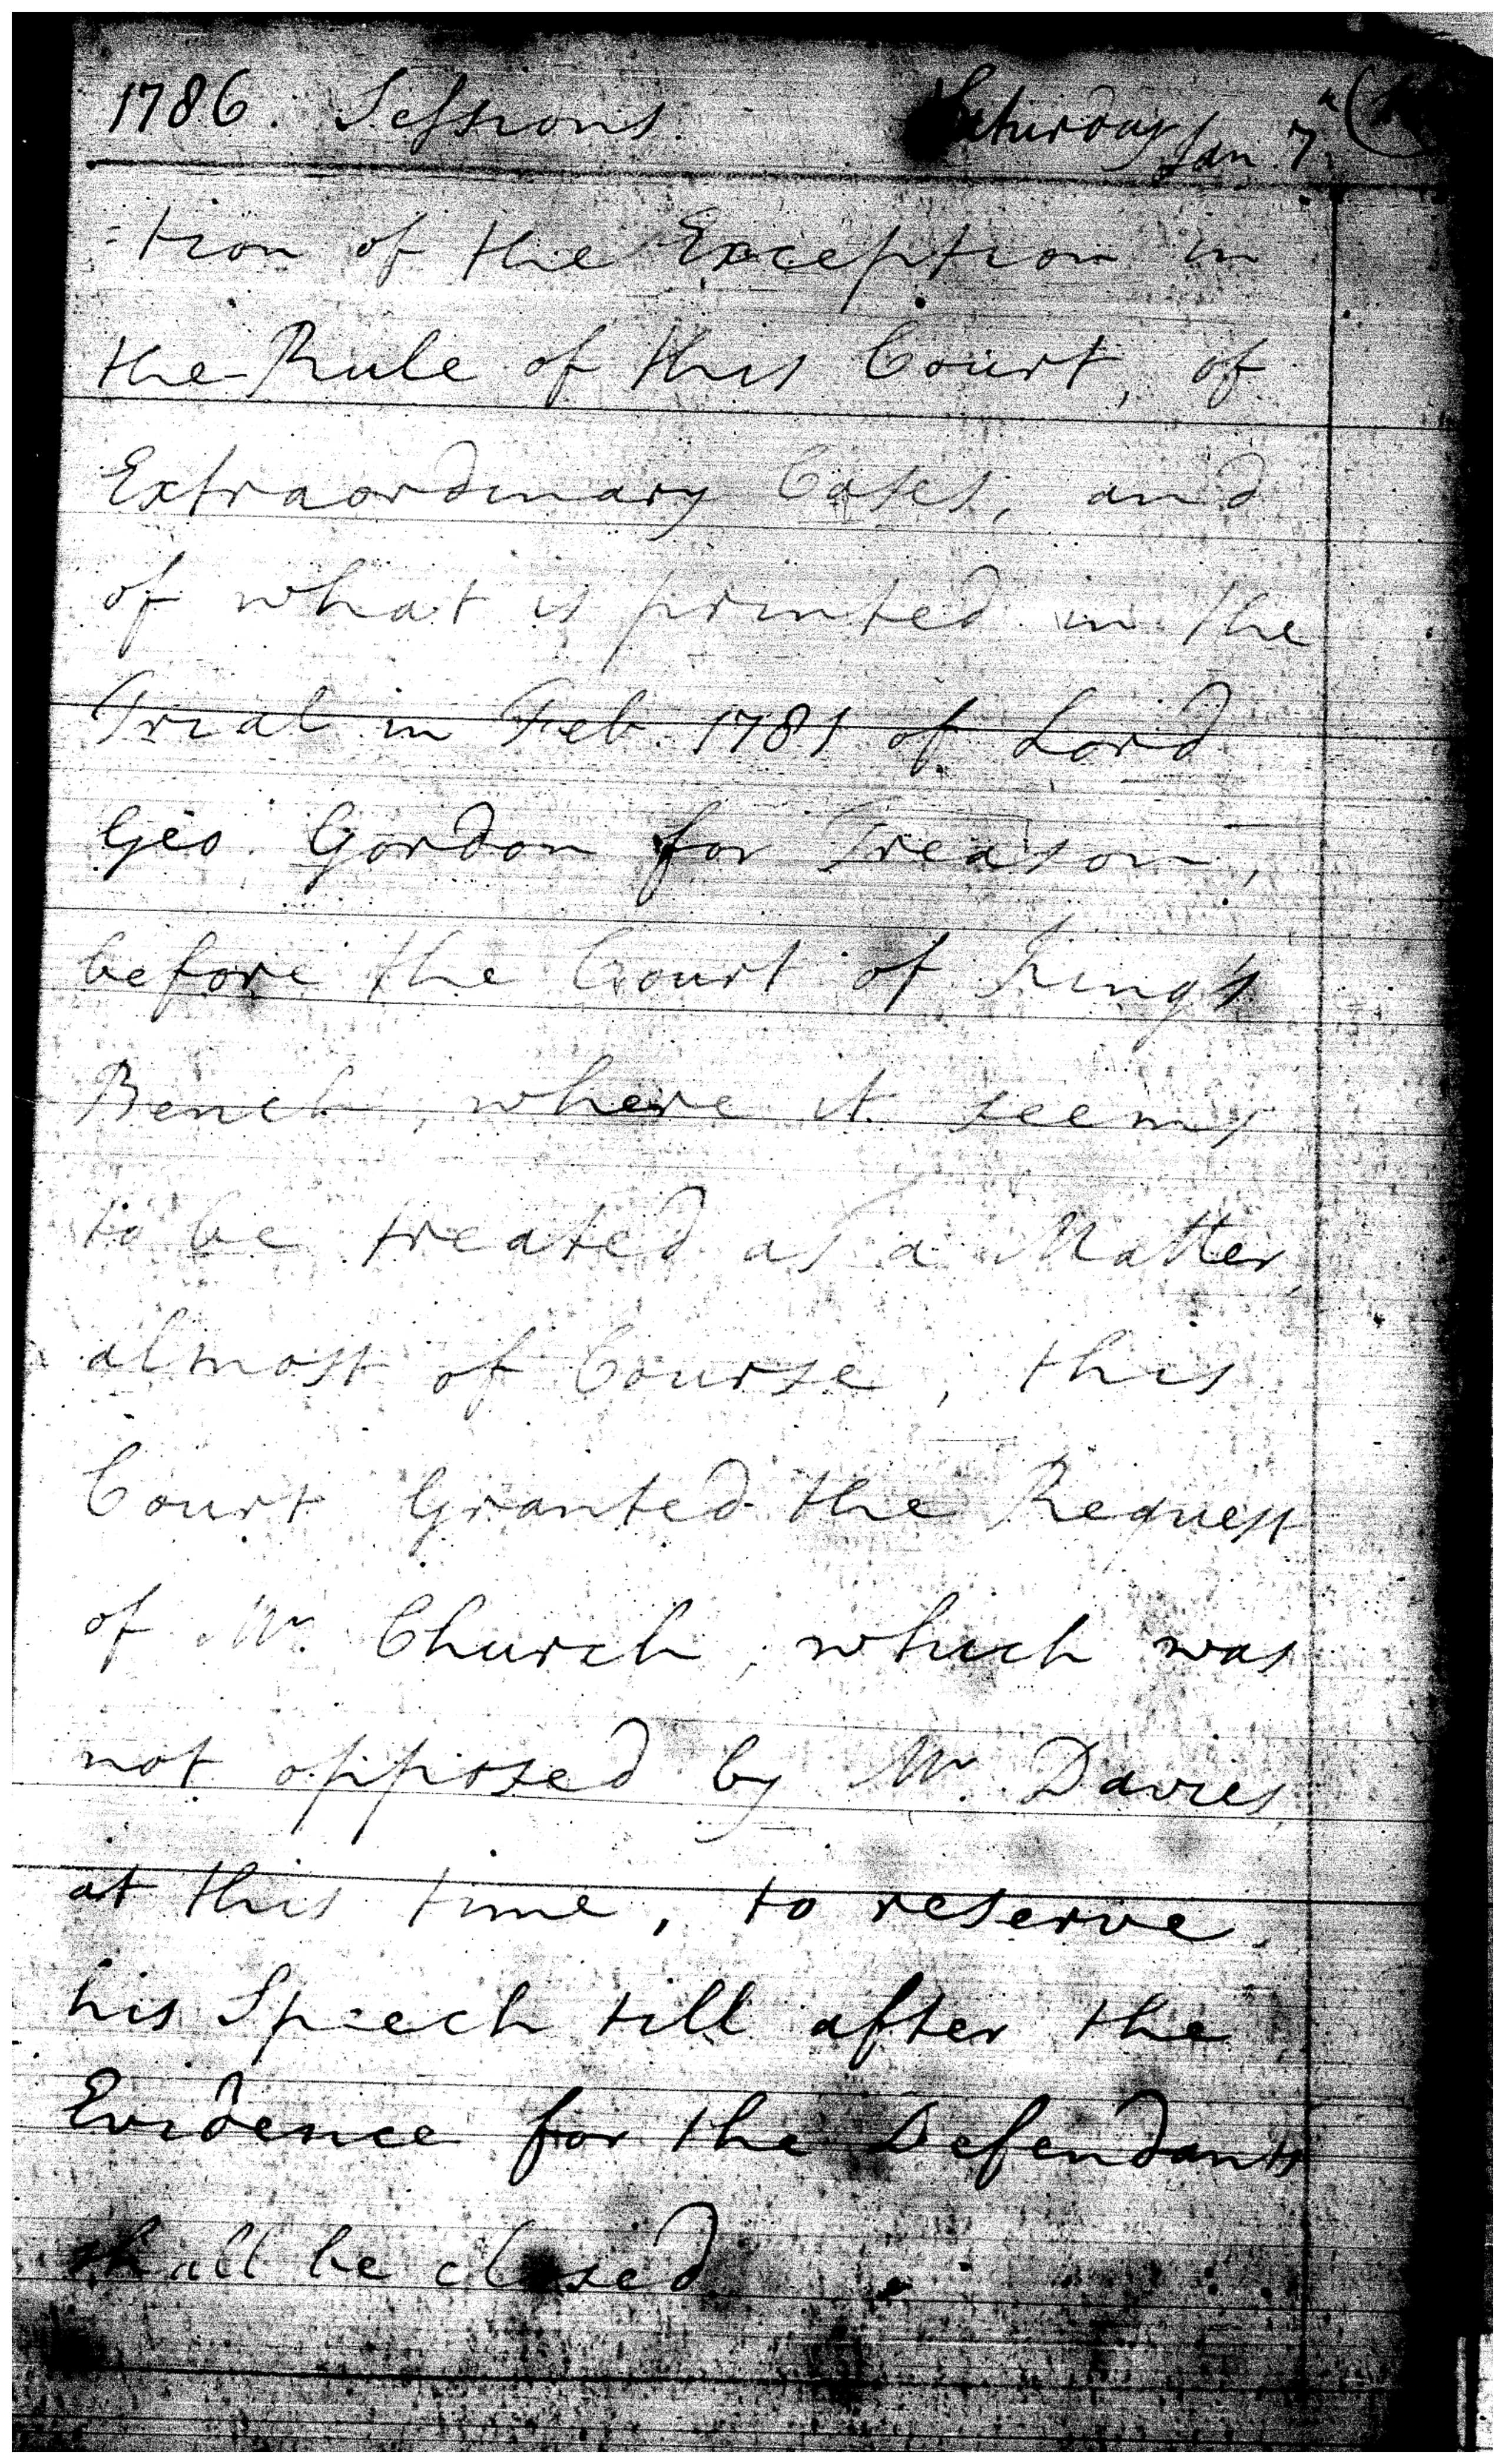 1786. Sessions. Saturday Jan. 7.
=tion of the Exception in
the Rule of this Court, of
Extraordinary Cases, and
of what is printed in the
Trial in Feb. 1781 of Lord
Geo. Gordon for Treason,
before the Court of King's
Bench, where it seems
to be treated as a Matter
almost of Course, this
Court Granted the Request
of Mr. Church, which was
not opposed by Mr. Davies,
at this time, to reserve
his Speech till after the
Evidence for the Defendants
shall be closed